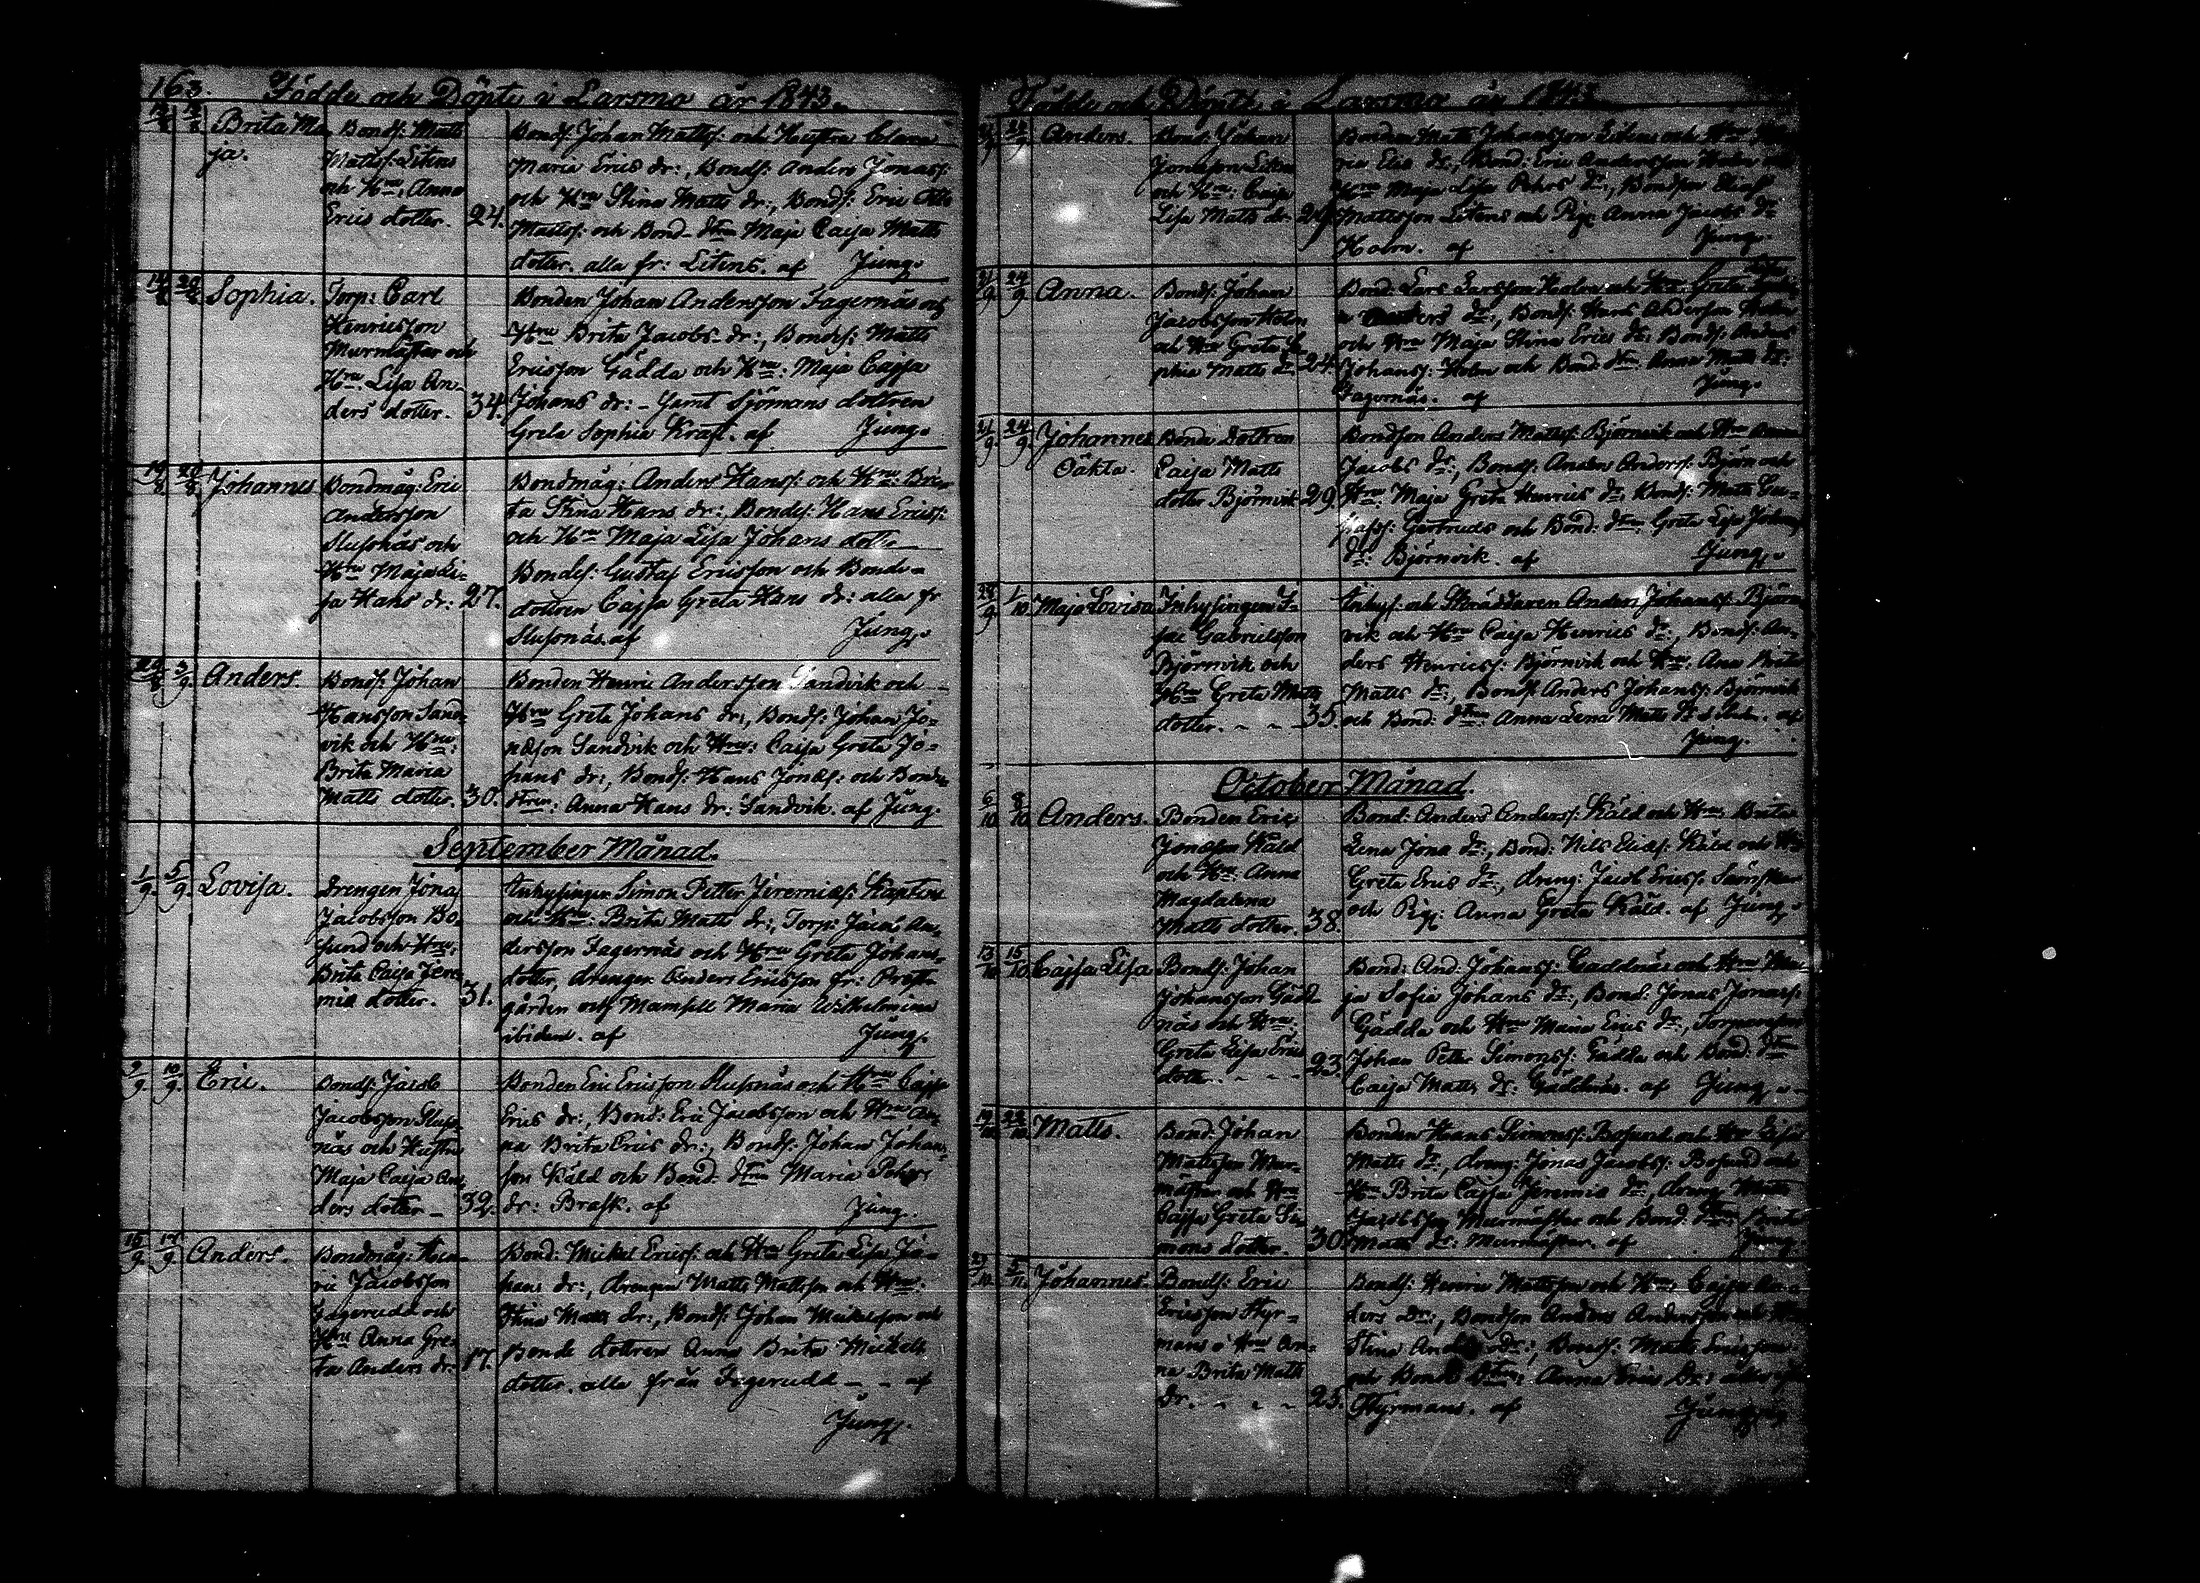 163. Födde och Döpte i Larsmo år 1843.
Brita Ma
ja.
Bonds: Matts
Matts: Litens
och Hu: Anna
Erics dotter. 24.
Bonds: Johan Matts: och Hustru
Maria Erics dr:, Bonds: Anders Jonas:
och Hu Stina Matts dr:, Bonds: Eric
Matts: och Bond-dtr Maja Caisa Matts
dotter. alla fr: Litens. af Jung.
14/8 20/8 Sophia.
Torp: Carl
Henricsson
Murmästar och
Hu: Lisa An-
ders dotter. 34.
Bonden Johan Andersson Fagernäs och
Hu Brita Jacobs dr:, Bonds: Matts
Ericsson Gädda och Hu: Maja Cajsa
Johans dr: - samt Sjömans dottren
Greta Sophia Kraft. af Jung.
19/8 20/8 Johannes
Bondmåg: Eric
Andersson
Slusnäs och
Hu: Maja Li-
sa Hans dr: 27.
Bondmåg: Anders Hans: och Hu: Bri-
ta Stina Hans dr:, Bonds: Hans Erics:
och Hu Maja Lisa Johans dott.
Bonds: Gustaf Ericsson och Bonde-
dottren Cajsa Greta Hans dr: alla fr
Slusnäs. af Jung.
3/9 Anders.
Bonds: Johan
Hansson Sand-
vik och Hu:
Brita Maria
Matts dotter. 30.
Bonden Henric Andersson Sandvik och
Hu Greta Johans dr:, Bonds: Johan Jo-
nasson Sandvik och Hu: Caisa Greta Jo-
hans dr:, Bonds: Hans Jonas: och Bonde
dtr: Anna Hans dr: Sandvik. af Jung.
September Månad.
1/9 5/9 Lovisa.
Drengen Jonas
Jacobsson Bo-
sund och Hu:
Brita Caisa Jere-
mia dotter. 31.
Inhysingen Simon Petter Jeremias:
och Hu: Brita Matts dr:, Torp: Jacob An-
dersson Fagernäs och Hu Greta Johans-
dotter, drengen Anders Ericsson fr: Prest-
gården och Mamsell Maria Wilhelmina
ibidem. af Jung.
9/9 10/9 Eric.
Bonds: Jacob
Jacobsson Slus-
näs och Hustru
Maja Caisa An-
ders dotter - 32.
Bonden Eric Ericsson Slusnäs och Hu Cajsa
Erics dr:, Bond: Eric Jacobsson och Hu An-
na Brita Erics dr:, Bonds: Johan Johans-
son Käld och Bond: dtr Maria Pehrs
dr: Brask. af Jung.
16/9 17/9 Anders.
Bondmåg: Hen-
ric Jacobsson
Fagerudd och
Hu Anna Gre-
ta Anders dr: 17.
Bond: Mickel Erics: och Hu Greta Lisa Jo-
hans dr:, drengen Matts Mattsson och Hu:
Stina Matts dr:, Bonds: Johan Mickelsson och
Bonde dottren Anna Brita Mickels
dotter. alla från Fagerudd - - af
Jung.
Födde och Döpte i Larsmo år 1843.
Anders.
Bonds: Johan
Jonasson Liten
och Hu: Cajsa
Lisa Matts dr.
Bonden Matts Johansson Litens och Hu
ria Eric dr:, Bond: Eric Andersson Holm
Hu Maja Lisa Pehrs dr:, Bondson
Mattsson Litens och Pig: Anna Jacobs dr
Holm. af Jung.
21/9 24/9 Anna.
Bonds: Johan
Jacobsson Holm
och Hu Greta So-
phia Matts dr 24.
Bond: Lars Larsson Holm och Hu Greta
dr:, Bonds: Hans Andersson Holm
och Hu Maja Stina Erics dr: Bonds: Anders
Johans: Holm och Bond dtr Anna Matts dr:
Fagernäs. af Jung.
21/9 24/9 Johannes
Oäkta.
Bonde dottren
Caisa Matts
dotter Björnvik 29.
Bondson Anders Matts: Björnvik och Hu Anna
Jacobs dr:, Bonds: Anders Anders: Björn och
Hu: Maja Greta Henrics dr: Bonds: Matts Gu-
stafs: Gertruds och Bond: dtr: Greta Lisa Johans
dr: Björnvik. af Jung.
28/9 1/10 Maja Lovisa
Inhysingen I-
sac Gabrielsson
Björnvik och
Hu Greta Matts
dotter. - - 35.
Inhys: och Skräddaren Anders Johans: Björn-
vik och Hu Caisa Henrics dr:, Bonds: An-
ders Henrics: Björnvik och Hu: Ana Brita
Matts dr:, Bonds: Anders Johans: Björnvik
och Bond: dtr: Anna Lena Matts dr: af
Jung.
October Månad.
6/10 8/10 Anders.
Bonden Eric
Jonasson Käld
och Hu: Anna
Magdalena
Matts dotter. 38.
Bond: Anders Anders: Käld och Hu: Brita
Lena Jona dr:, Bond: Nils Erics: Käld och Hu
Greta Erics dr:, dreng: Jacob Erics:
och Pig: Anna Greta Käld. af Jung.
13/10 15/10 Cajsa Lisa
Bonds: Johan
Johansson Gädd-
näs och Hu:
Greta Lisa Erics
dotter. - - - 23.
Bond: And: Johans: Gäddnäs och Hu Ma-
ja Sofia Johans dr:, Bond: Jonas Jonas:
Gädda och Hu Maria Erics dr:,
Johan Petter Simons: Gädda och Bond: dtr
Caisa Matts dr: Gäddnäs. af Jung.
19/10 22/10 Matts.
Bond: Johan
Mattsson Mur-
mästar och Hu
Cajsa Greta Si-
mons dotter. 30.
Bonden Hans Simons: Bosund och Hu Lisa
Matts dr:, dreng: Jonas Jacobs: Bosund och
Hu Brita Cajsa Jeremia dr:, dreng Matts
Jacobsson Murmästar och Bond: dtr: Brita
Matts dr: Murmästar. af Jung.
Johannes.
Bonds: Eric
Ericsson Styr-
mans o Hu An-
na Brita Matts
dr. - - - 25.
Bonds: Henric Mattsson och Hu: Cajsa An-
ders dr:, Bondson Anders Andersson och Hu
Stina dr:, Bonds: Matts Ericsson
och Bond dtr: Anna Erics dr: alla
Styrmans. af Jung.